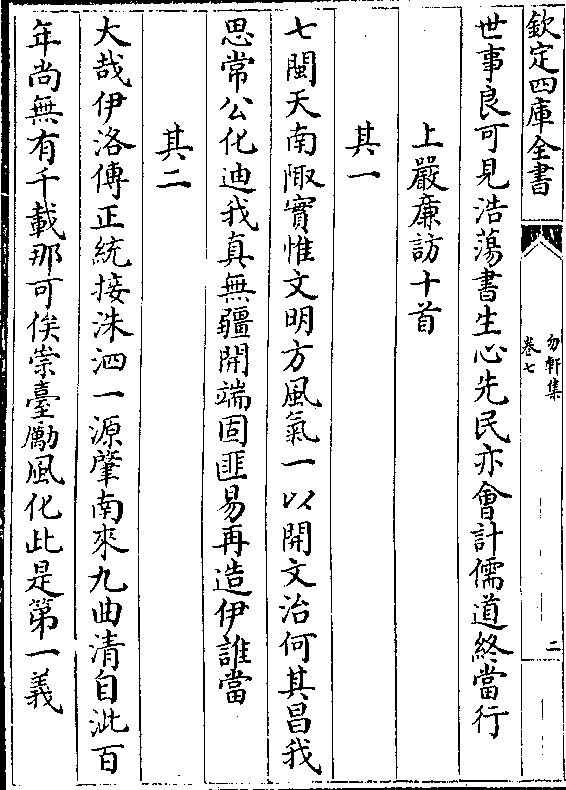 欽定四庫全書
勿軒集
卷七
二
世事良可見浩蕩書生心先民亦會計儒道終當行
上嚴廉訪十首
其一
七閩天南陬實惟文明方風氣一以開文治何其昌我
思常公化迪我真無疆開端固匪易再造伊誰當
其二
大哉伊洛傳正統接洙泗一源肇南來九曲清自泚百
年尚無有千載那可俟崇臺勵風化此是第一義